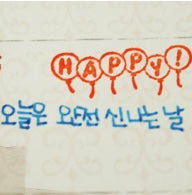 HAPPY!
오늘은 완전 신나는 날